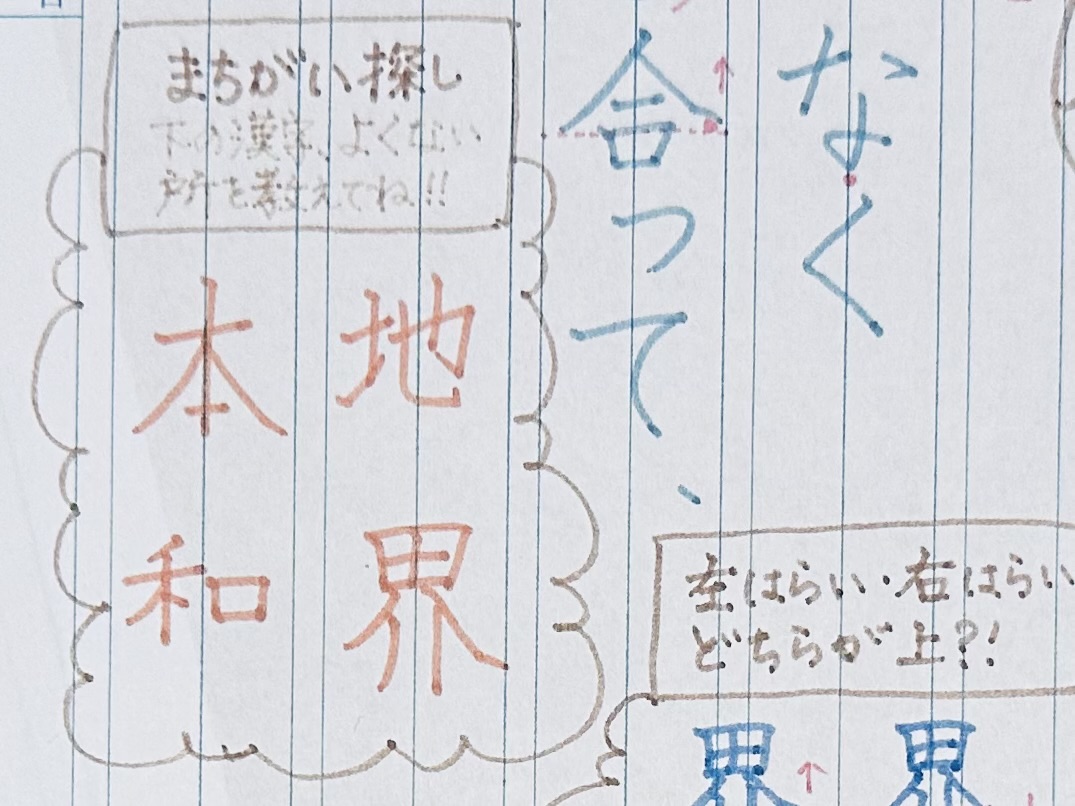 なく
合って、
左はらい・右はらい
どちらが上?!
界
界
まちがい探し
下の漢字、よくない
所を教えてね!!
地
界
本
和